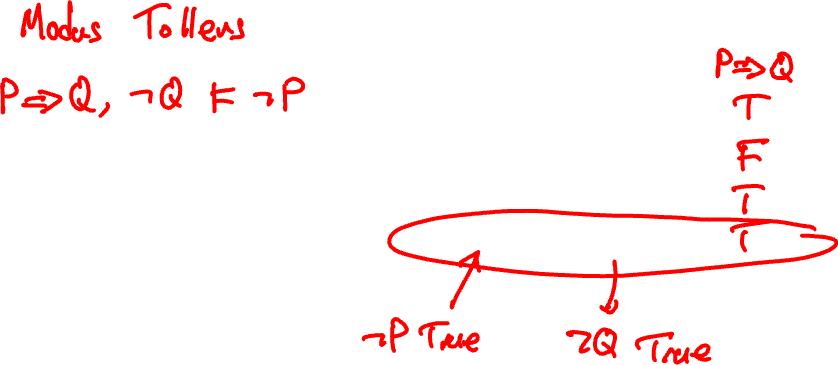 Modus Tollens
P⇒Q, ¬Q ⊨ ¬P
P⇒Q
T
F
T
T
¬P True
¬Q True